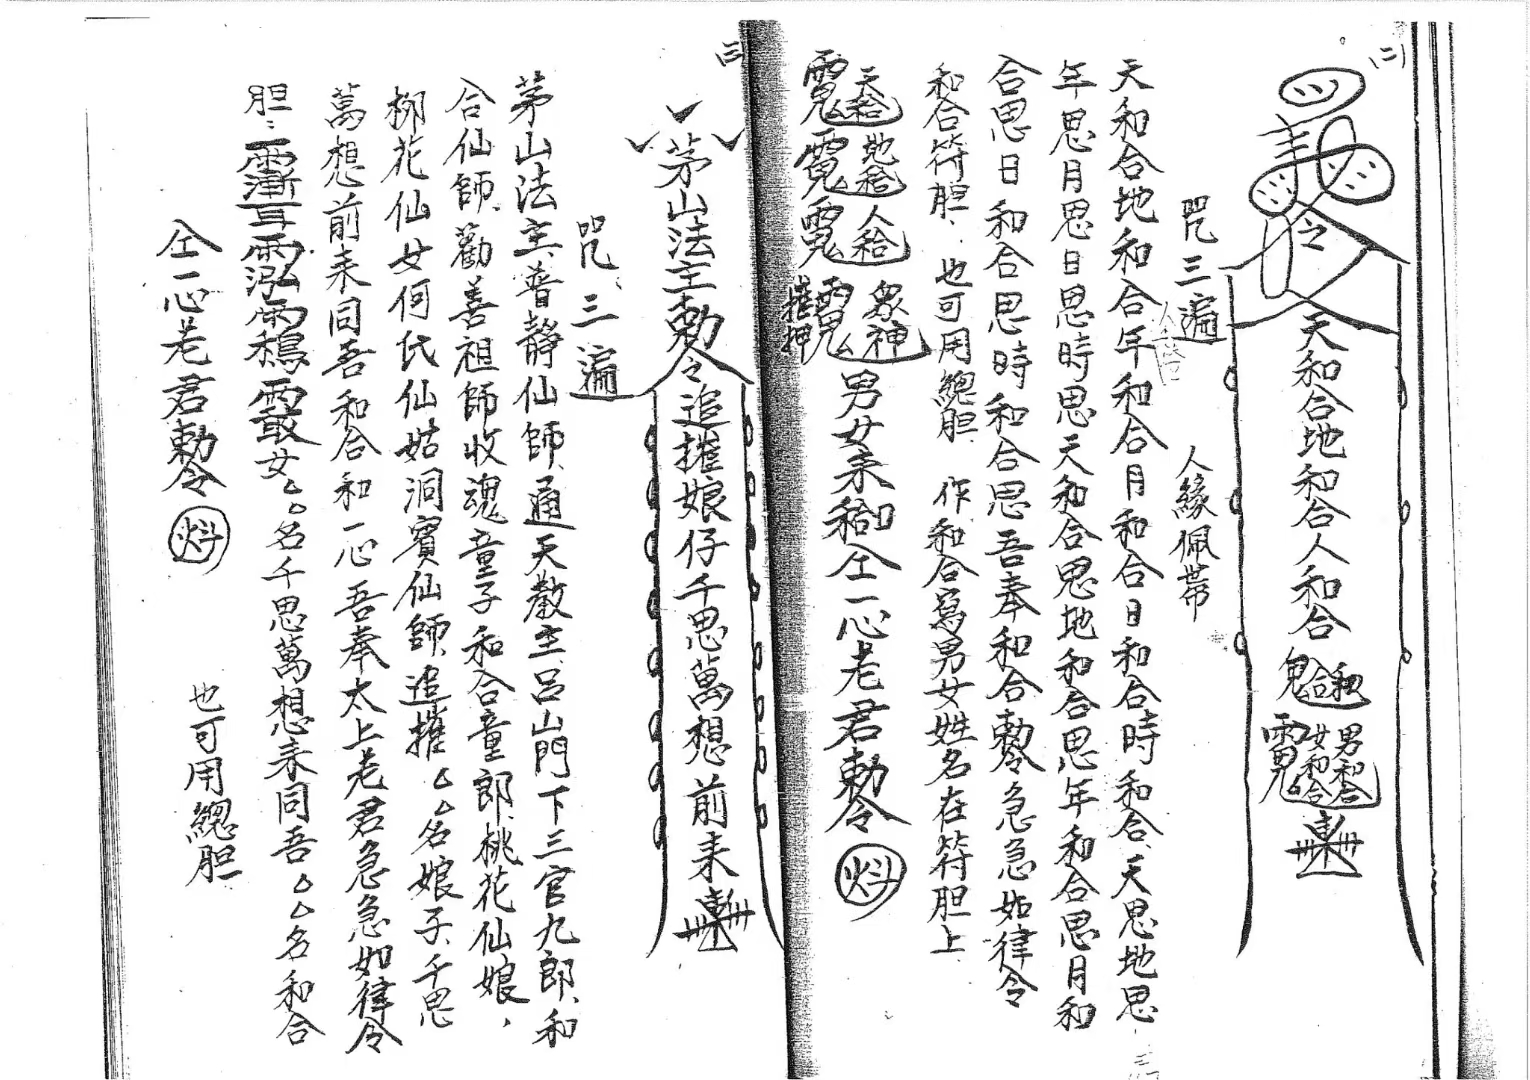 (二)
令
天和合地和合人和合
男和合
女和合
咒三遍 人緣佩帶
天和合地和合年和合月和合日和合時和合、天思地思
年思月思日思時思天和合思地和合思年和合思月和
合思日和合思時和合思吾奉和合勅令急急如律令
和合符胆、也可用總胆、作和合寫男女姓名在符胆上
天和合 地和合 人和合 眾神
摧押
男女來和合仝一心老君勅令
(三)
茅山法主勅令追摧娘仔千思萬想前來
咒、三遍
茅山法主、普靜仙師、通天教主、呂山門下三官九郎、和
合仙師、勸善祖師收魂童子和合童郎、桃花仙娘，
柳花仙女何氏仙姑洞賓仙師、追摧△△名娘子、千思
萬想前來同吾和合和一心吾奉太上老君急急如律令
胆：
女△△名千思萬想來同吾△△名和合
仝一心老君勅令
也可用總胆